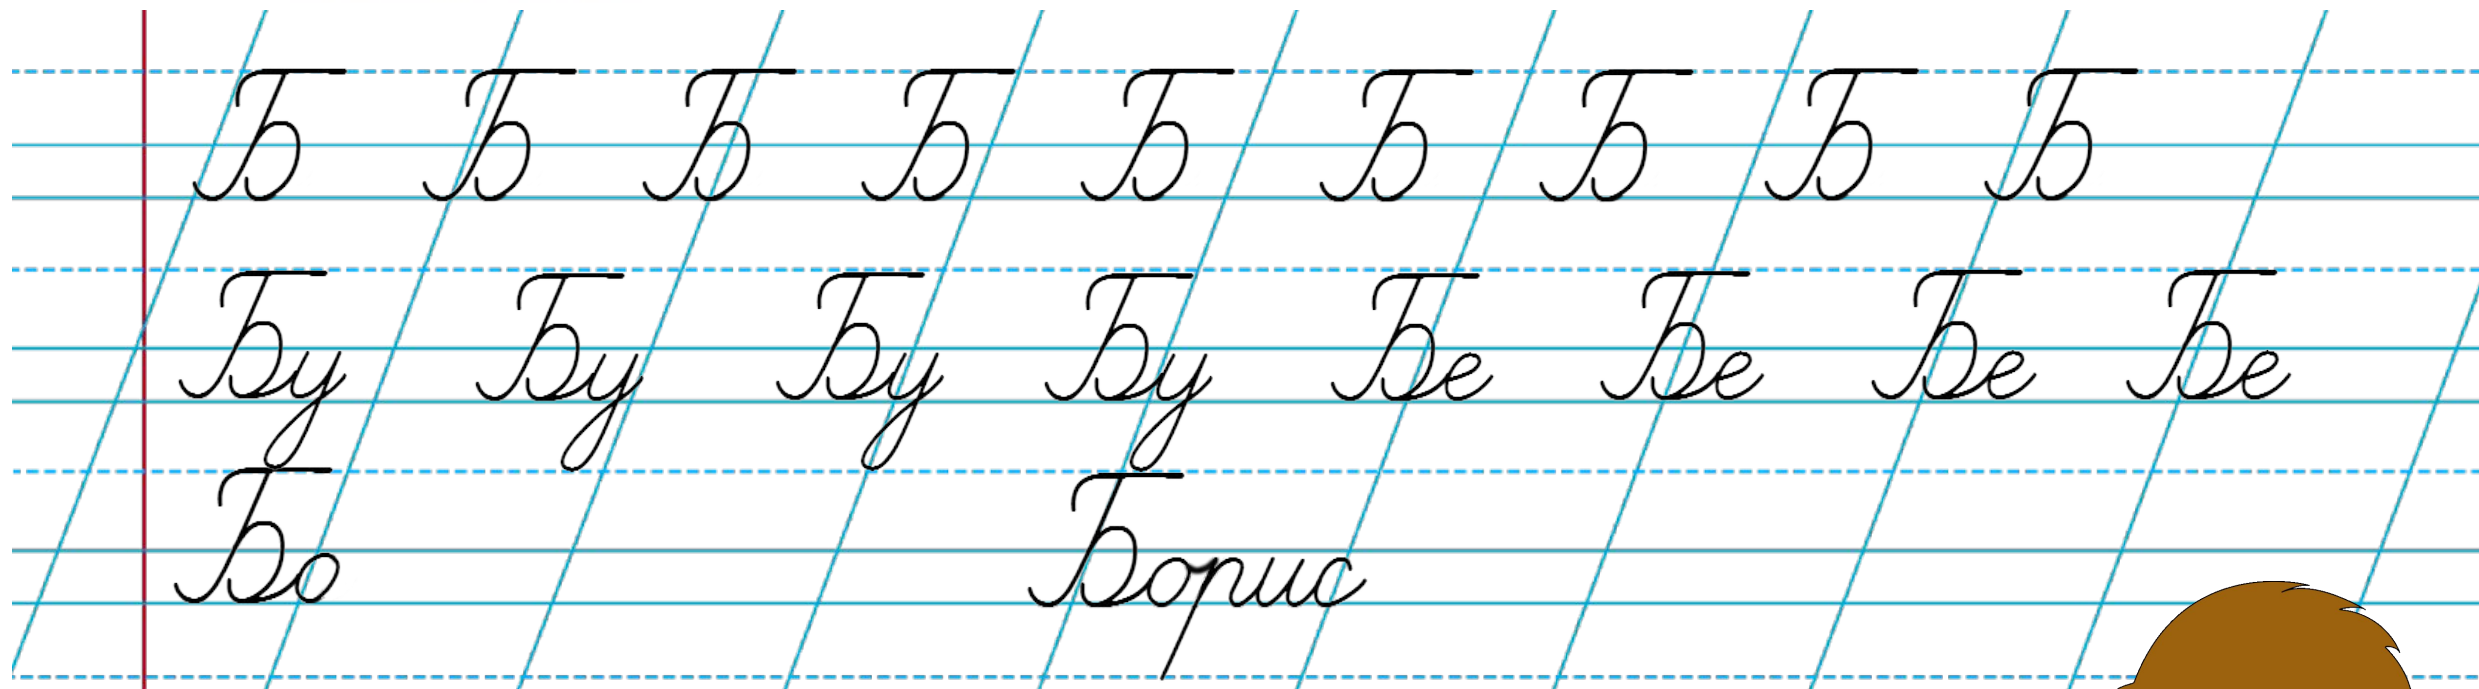 Б Б Б Б Б Б Б Б Б
Бу Бу Бу Бу Бе Бе Бе Бе
Бо Борис